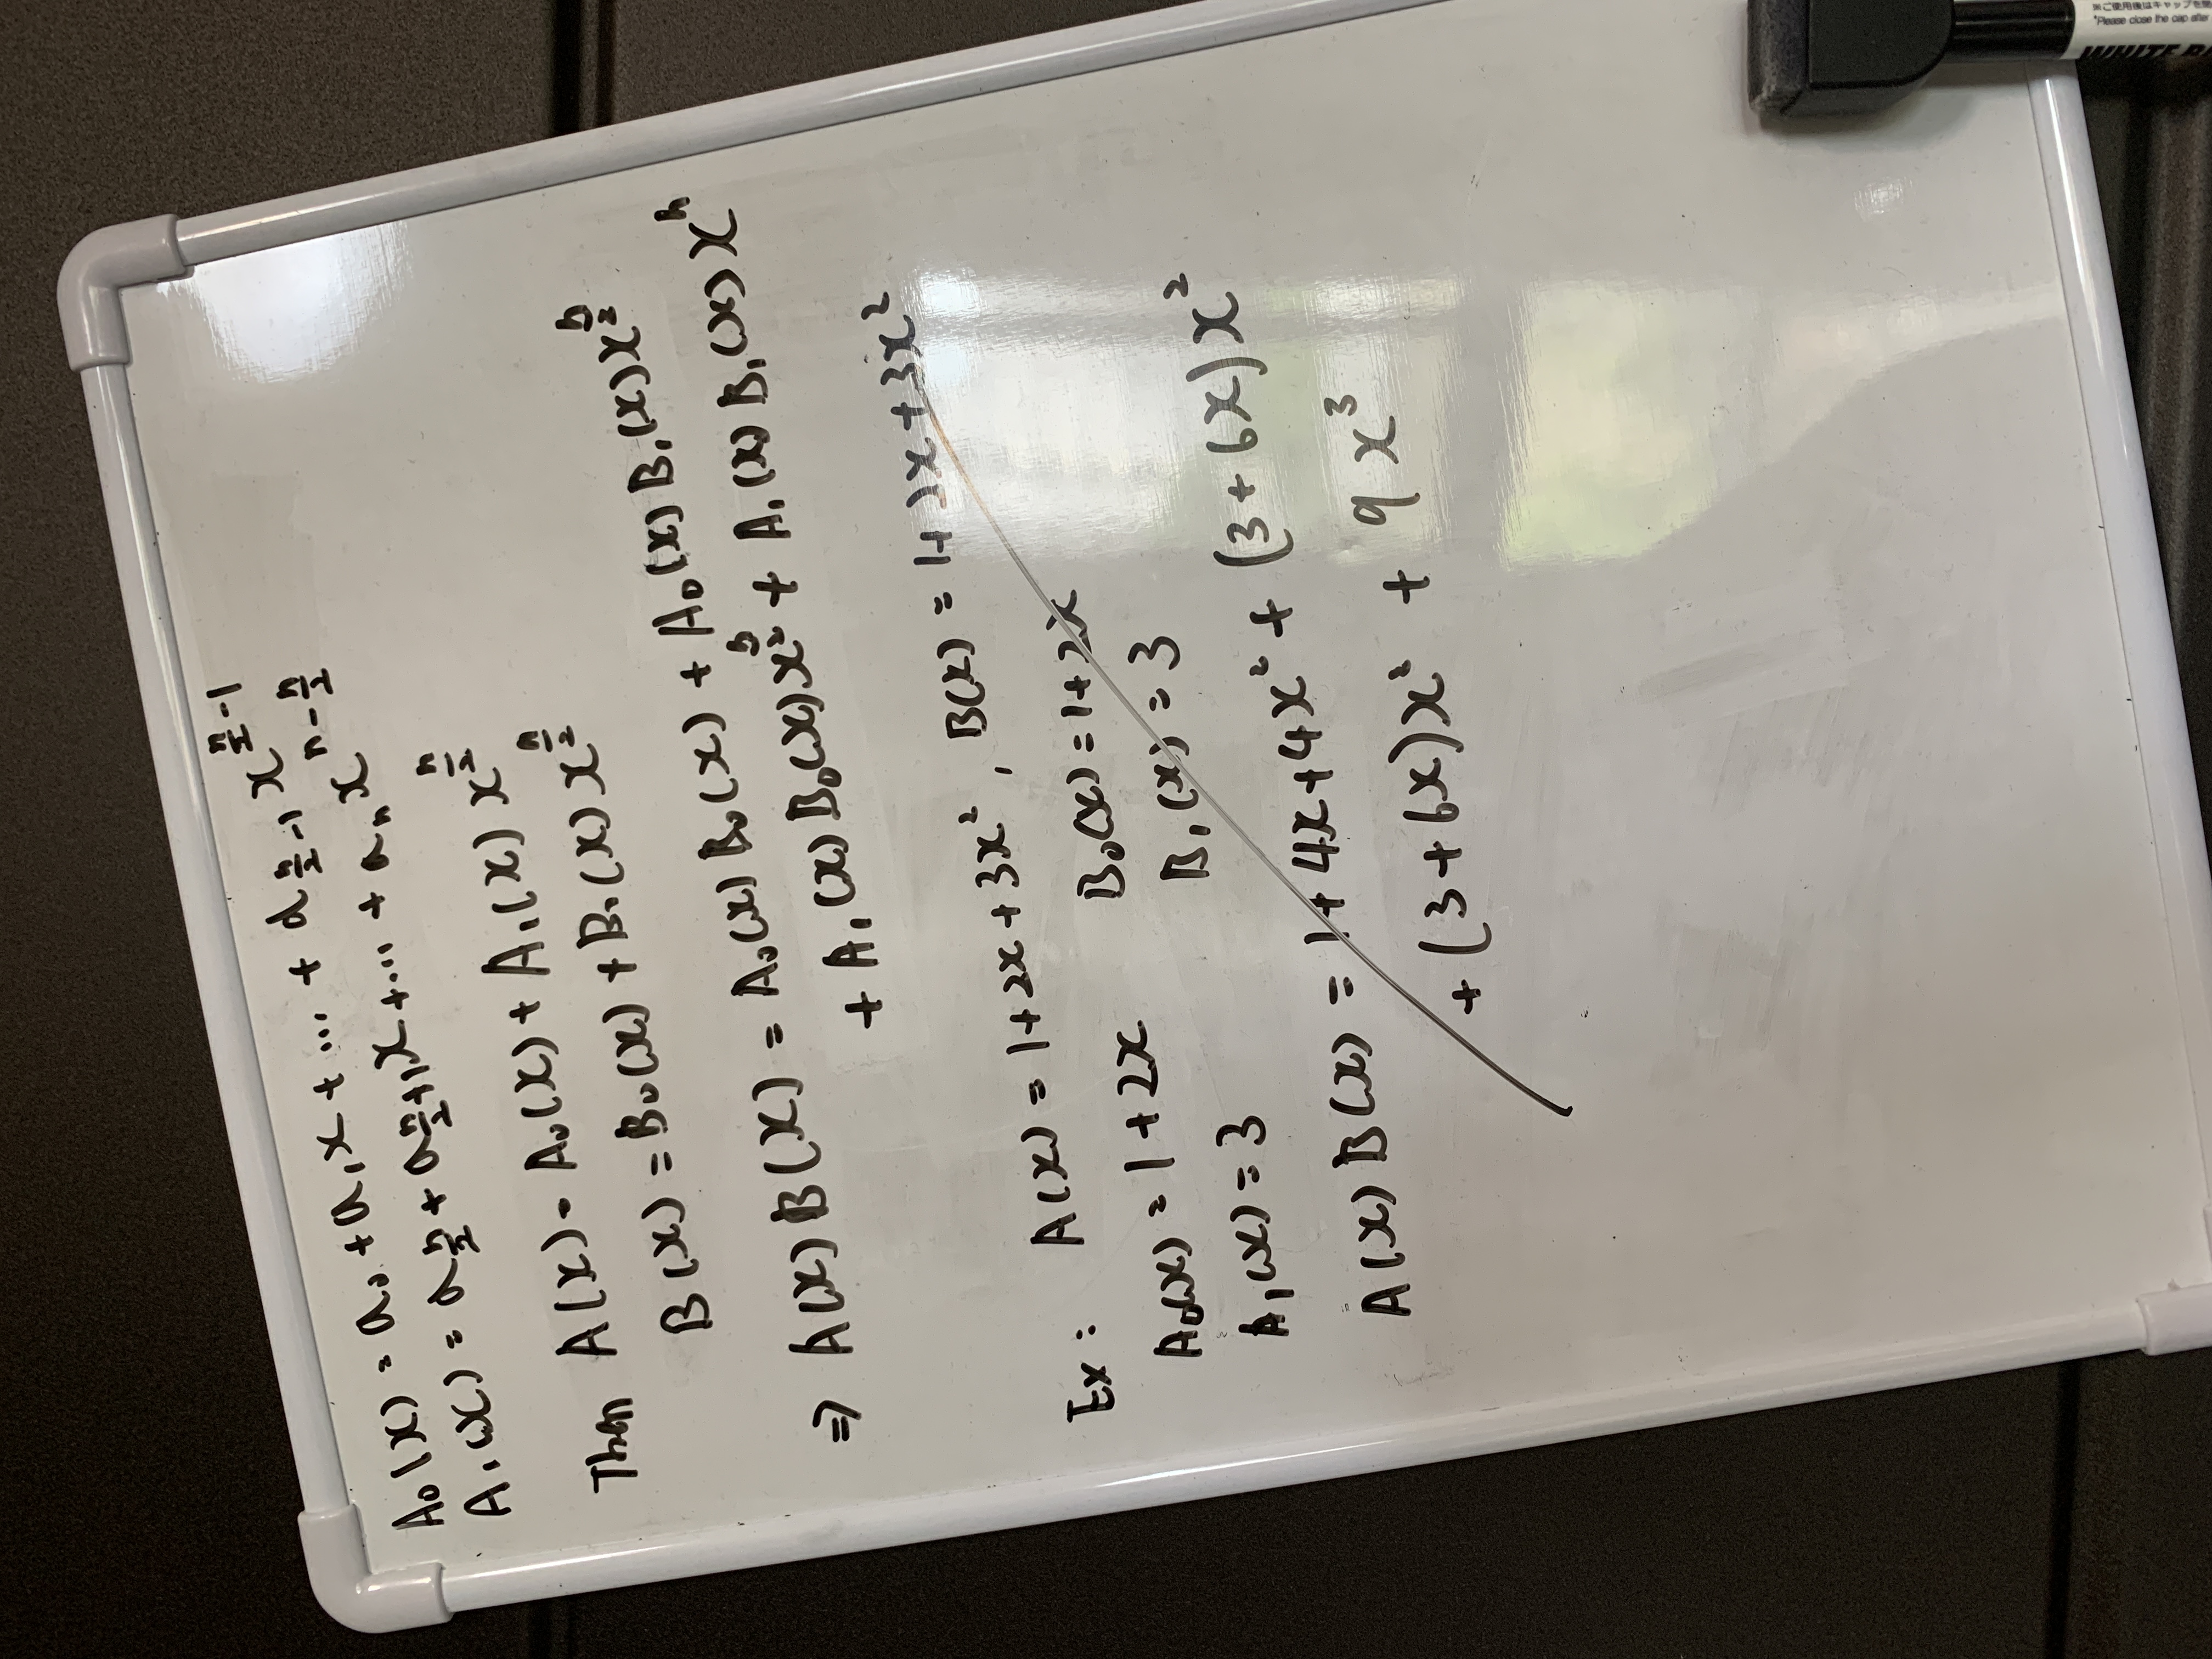 A₀(x) = a₀ + a₁x + ... + a_{n/2 -1} x^{n/2 -1}
A₁(x) = a_{n/2} + a_{n/2 +1}x + ... + a_n x^{n - n/2}
Then A(x) = A₀(x) + A₁(x) x^{n/2}
B(x) = B₀(x) + B₁(x) x^{n/2}
⇒ A(x) B(x) = A₀(x) B₀(x) + A₀(x) B₁(x) x^{n/2}
+ A₁(x) B₀(x) x^{n/2} + A₁(x) B₁(x) x^n
Ex: A(x) = 1+2x+3x², B(x) = 1+2x+3x²
A₀(x) = 1+2x B₀(x) = 1+2x
A₁(x) = 3 B₁(x) = 3
A(x) B(x) = 1+4x+4x² + (3+6x)x²
+ (3+6x)x² + 9x³
*Please close the cap after